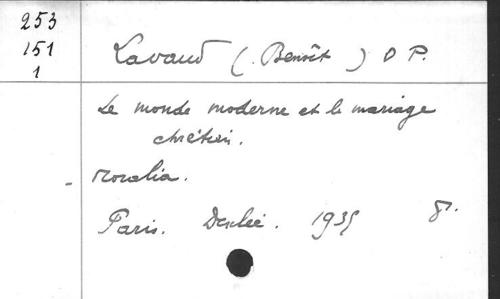 253
151
1
Lavaud (Benoît) O P.
Le monde moderne et le mariage
chrétien.
- Moralia.
Paris. Desclée. 1935 8°.